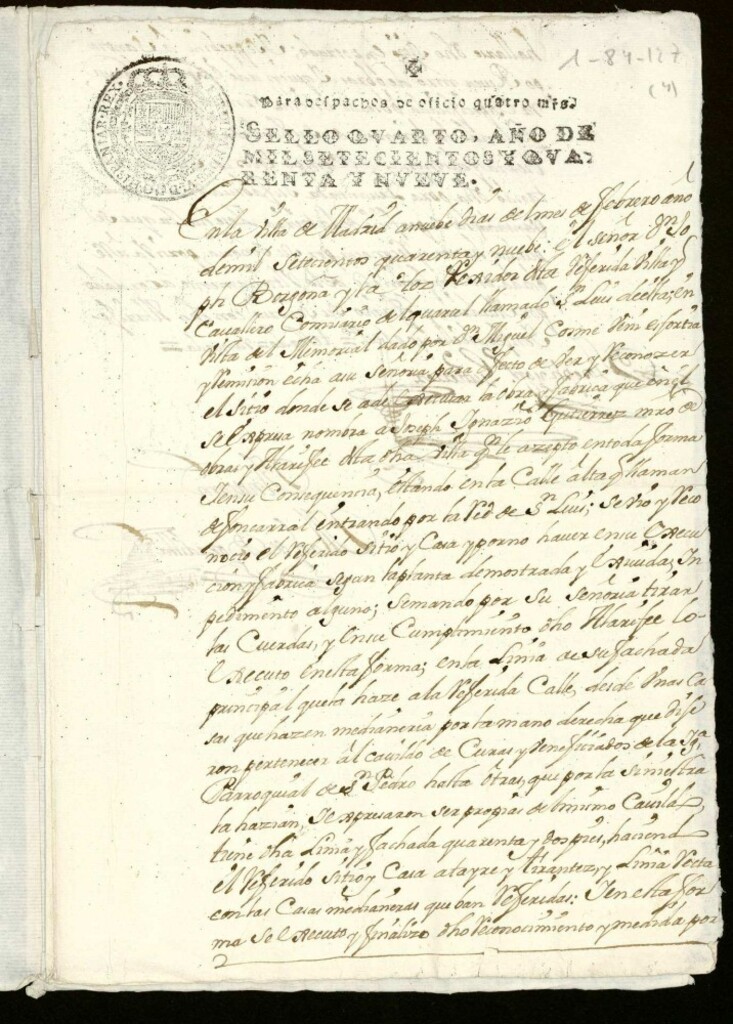 1-84-127
(4)
HISPANIAR. REX.
Para despachos de oficio quatro mrs.
SELLO QVARTO, AÑO DE
MIL SETECIENTOS Y QVA-
RENTA Y NVEVE.
En la Villa de Madrid a nuebe dias del mes de febrero año
de mil setecientos y quarenta y nuebe: el señor Dn Jo
ph Borgoña y la Hoz Rexidor dela Referida Villa y
Cavallero Comisario de el quartel llamado Sn Luis de ella; en
Vista del Memorial dado por Dn Miguel Cosme
y Remision echa a su Señoria para efecto de Ver y Reconozer
el sitio donde se a de executar la obra y fabrica que en el
se expresa nombra a Joseph Ignazio Gutierrez mro de
obras y Alarife dela dha Villa qe lo azepto en toda forma
Y en su Consequencia, estando en la Calle alta q llaman
de foncarral entrando por la Red de Sn Luis; se vio y Reco
nocio el Referido Sitio y Casa y por no haver en su execu
cion y fabrica segun la planta demostrada y exivida, In
pedimento alguno; se mando por Su Señoria tirar
las Cuerdas, y en su Cumplimiento dho Alarife lo
executo en esta forma; en la Linia de su fachada
principal que esta haze a la Referida Calle, desde unas ca
sas que hazen medianeria por la mano derecha que dixe
ron pertenecer al cavildo de Curas y Beneficiados de la Iga
Parroquial de Sn Pedro hasta otras, que por la siniestra
la hazian, se expresaron ser propias del mismo Cavildo,
tiene dha Linia y fachada quarenta y dos pies, haciend
el Referido Sitio y Casa alayre y tirantez, y Linia Recta
con las Casas medianeras que ban Referidas: Y en esta for
ma se executo y finalizo dho Reconocimiento y medida, por